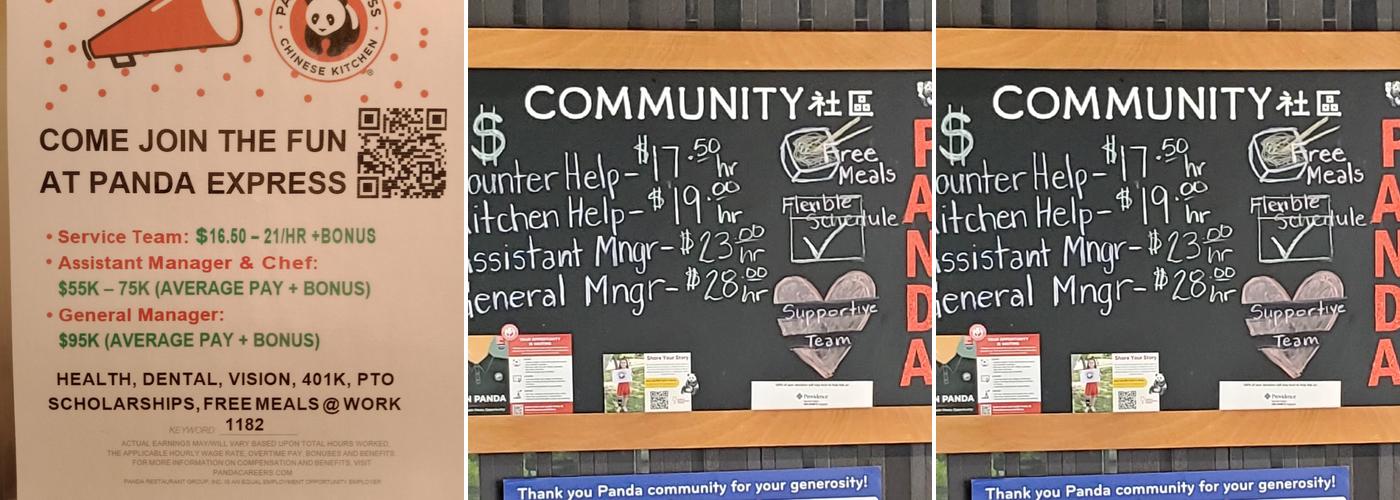 CHINESE KITCHEN
COME JOIN THE FUN
AT PANDA EXPRESS
• Service Team: $16.50 – 21/HR +BONUS
• Assistant Manager & Chef:
$55K – 75K (AVERAGE PAY + BONUS)
• General Manager:
$95K (AVERAGE PAY + BONUS)
HEALTH, DENTAL, VISION, 401K, PTO
SCHOLARSHIPS, FREE MEALS @ WORK
KEYWORD: 1182
ACTUAL EARNINGS MAY/WILL VARY BASED UPON TOTAL HOURS WORKED,
THE APPLICABLE HOURLY WAGE RATE, OVERTIME PAY, BONUSES AND BENEFITS.
FOR MORE INFORMATION ON COMPENSATION AND BENEFITS, VISIT
PANDACAREERS.COM
PANDA RESTAURANT GROUP, INC. IS AN EQUAL EMPLOYMENT OPPORTUNITY EMPLOYER
COMMUNITY 社區
$
ounter Help – $17.50 hr
itchen Help – $19.00 hr
ssistant Mngr – $23.00 hr
eneral Mngr – $28.00 hr
Free
Meals
Flexible
Schedule
Supportive
Team
PANDA
YOUR OPPORTUNITY
IS WAITING
N PANDA
Share Your Story
Providence
Thank you Panda community for your generosity!
COMMUNITY 社區
$
ounter Help – $17.50 hr
itchen Help – $19.00 hr
ssistant Mngr – $23.00 hr
eneral Mngr – $28.00 hr
Free
Meals
Flexible
Schedule
Supportive
Team
PANDA
YOUR OPPORTUNITY
IS WAITING
N PANDA
Share Your Story
Providence
Thank you Panda community for your generosity!